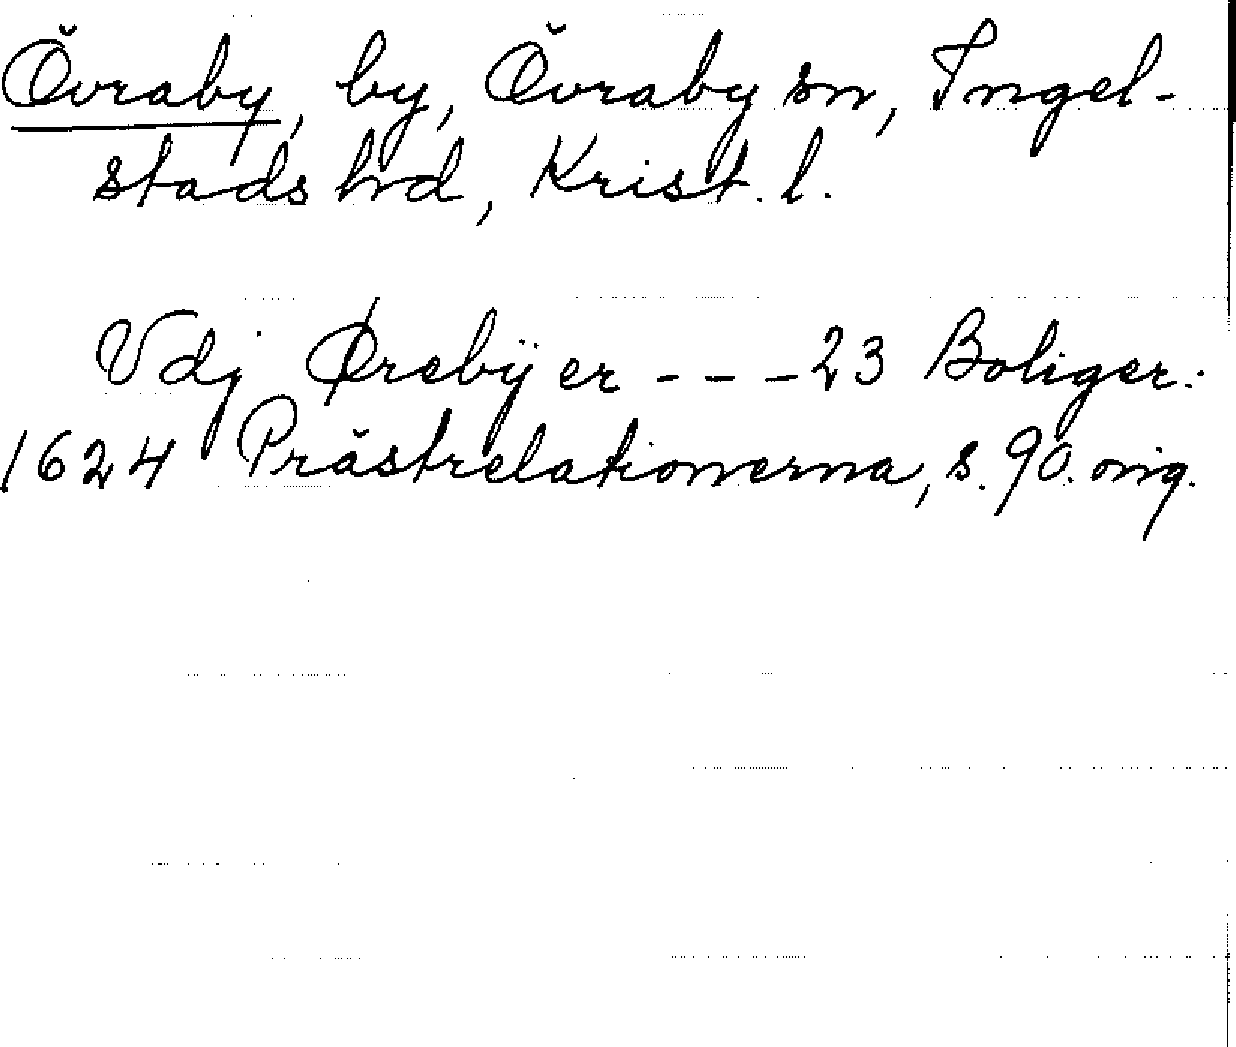 Övraby, by, Övraby sn, Ingel-
stads hd, Krist. l.
Vdj Ørebÿ er - - - 23 Boliger.:
1624 Prästrelationerna, s. 90. orig.